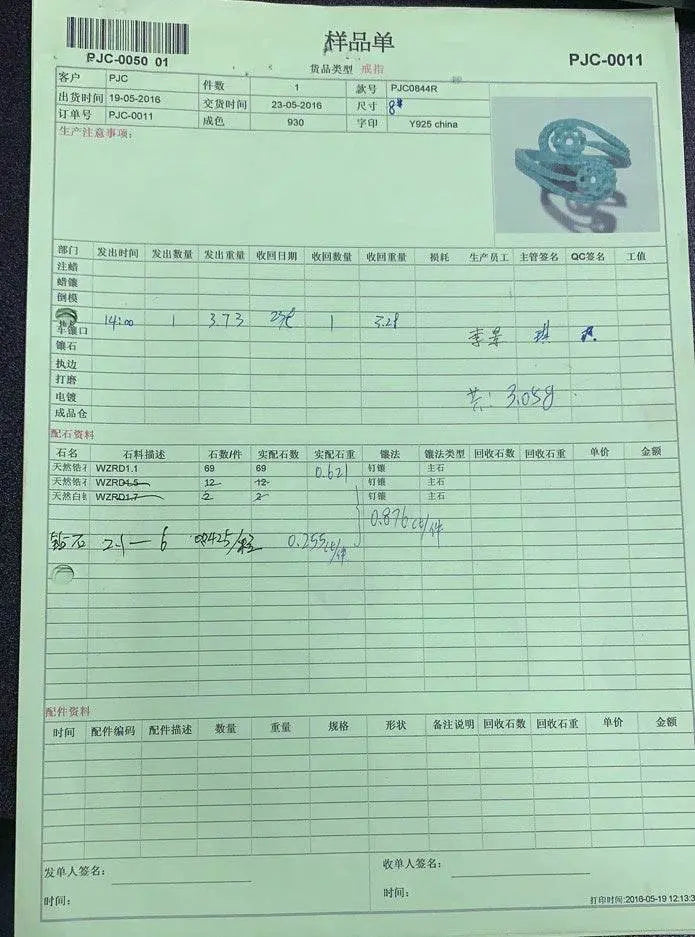 样品单
PJC-0050 01
货品类型 戒指
PJC-0011
客户 PJC 件数 1 款号 PJC0844R
出货时间 19-05-2016 交货时间 23-05-2016 尺寸 8#
订单号 PJC-0011 成色 930 字印 Y925 china
生产注意事项:
部门 发出时间 发出数量 发出重量 收回日期 收回数量 收回重量 损耗 生产员工 主管签名 QC签名 工值
注蜡
蜡镶
倒模
14:00 1 3.73 1
车镶口
镶石
执边
打磨
电镀 共: 3.05g
成品仓
配石资料
石名 石料描述 石数/件 实配石数 实配石重 镶法 镶法类型 回收石数 回收石重 单价 金额
天然锆 WZRD1.1 69 69 0.621 钉镶 主石
天然锆 WZRD1.5 12 12 钉镶 主石
天然白 WZRD1.7 2 2 钉镶 主石
0.876ct/件
钻石 2.1—6 0.0425/粒 0.255ct/件
配件资料
时间 配件编码 配件描述 数量 重量 规格 形状 备注说明 回收石数 回收石重 单价 金额
发单人签名: 收单人签名:
时间: 时间:
打印时间:2016-05-19 12:13:3